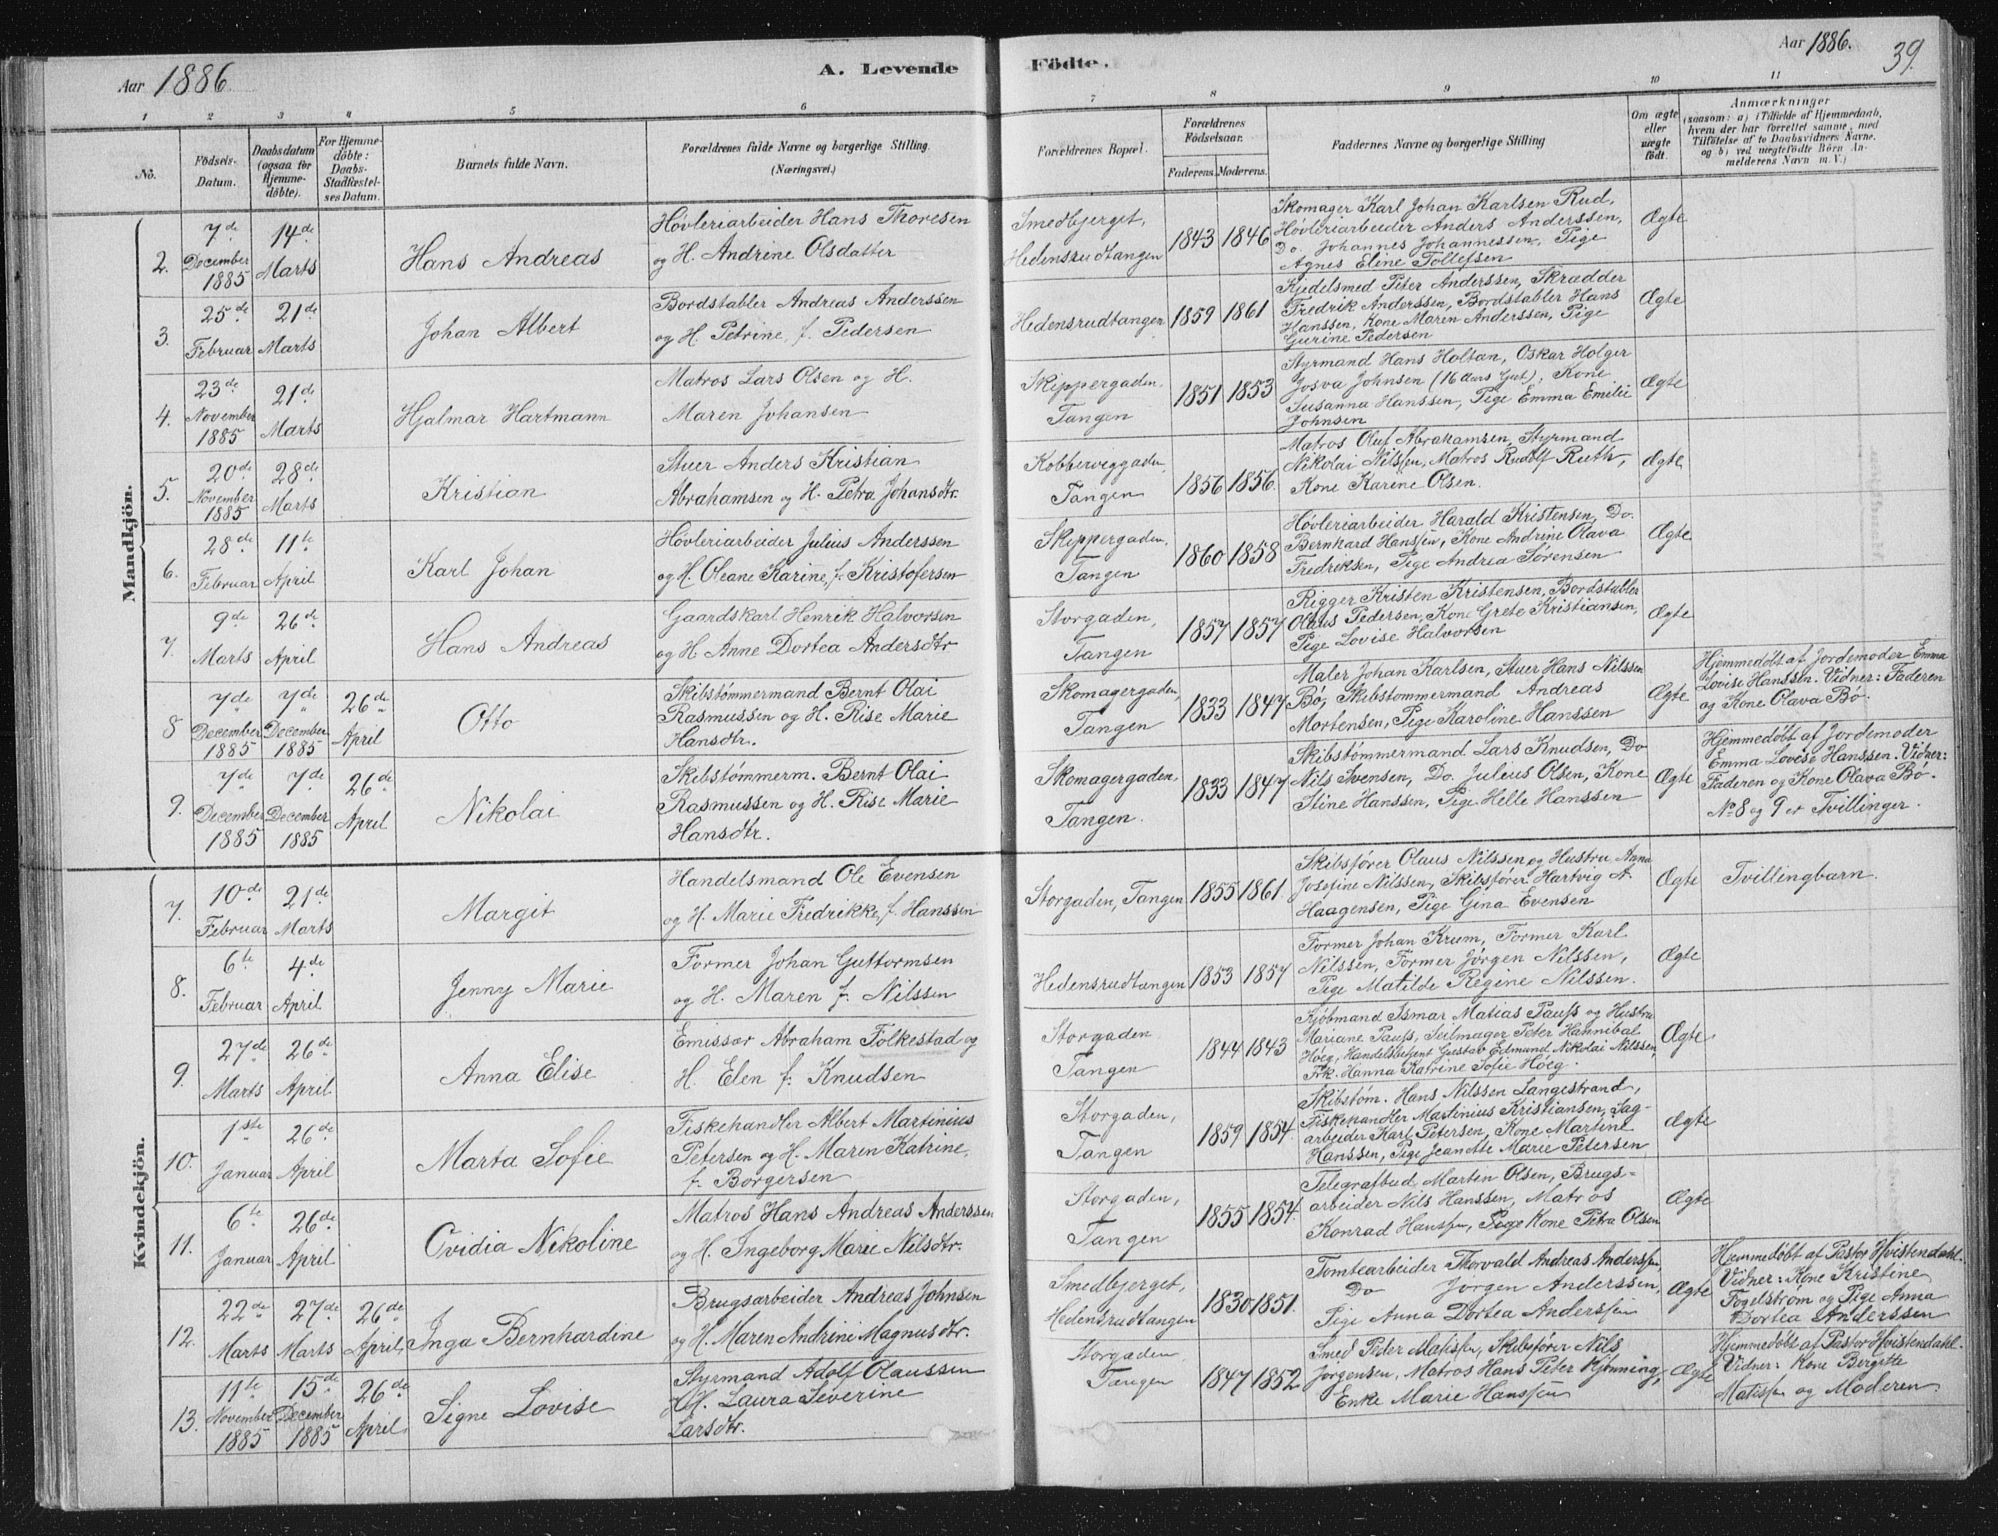 Aar 1886.
A. Levende Födte.
Aar 1886.
39.
1 2 3 4 5 6 7 8 9 10 11
No.
Födsels-Datum.
Daabsdatum (ogsaa for Hjemmedöbte).
For Hjemmedöbte: Daabs-Stadfæstelses Datum.
Barnets fulde Navn.
Forældrenes fulde Navne og borgerlige Stilling. (Næringsvei.)
Forældrenes Bopæl.
Forældrenes Födselsaar.
Faderens. Moderens.
Faddernes Navne og borgerlige Stilling
Om ægte eller uægte födt.
Anmærkninger (saasom: a) i Tilfælde af Hjemmedaab, hvem der har forrettet samme, med Tilföielse af to Daabsvidners Navne, og b) ved uægtefödte Börn Anmelderens Navn m. V.)
Mandkjön.
2. 7de December 1885 14de Marts Hans Andreas Høvleriarbeider Hans Thoresen og H. Andrine Olsdatter Smedbjerget, Hedensrudtangen 1843 1846 Skomager Karl Johan Karlsen Rud, Høvleriarbeider Anders Anderssen, Do. Johannes Johannessen, Pige Agnes Eline Tollefsen Ægte
3. 25de Februar 21de Marts Johan Albert Bordstabler Andreas Anderssen og H. Petrine, f. Pedersen Hedensrudtangen 1859 1861 Kjedelsmed Peter Anderssen, Skrædder Fredrik Anderssen, Bordstabler Hans Hanssen, Kone Maren Anderssen, Pige Gurine Pedersen Ægte
4. 23de November 1885 21de Marts Hjalmar Hartmann Matros Lars Olsen og H. Maren Johansen Skippergaden, Tangen 1851 1853 Styrmand Hans Holtan, Oskar Holger Josva Johnsen (16 Aars Gut), Kone Susanna Hanssen, Pige Emma Emilie Johnsen Ægte
5. 20de November 1885 28de Marts Kristian Stuer Anders Kristian Abrahamsen og H. Petra Johansdtr. Kobberveggaden, Tangen 1856 1856. Matros Oluf Abrahamsen, Styrmand Nikolai Nilssen, Matros Rudolf Ruth, Kone Karine Olsen. Ægte
6. 28de Februar 11te April Karl Johan Høvleriarbeider Julius Anderssen og H. Oleane Karine, f. Kristofersen Skippergaden, Tangen 1860 1858 Høvleriarbeider Harald Kristensen, Do. Bernhard Hanssen, Kone Andrine Olava Fredriksen, Pige Andrea Sørensen Ægte
7. 9de Marts 26de April Hans Andreas Gaardskarl Henrik Halvorsen og H. Anne Dortea Andersdtr Storgaden, Tangen 1857 1857 Rigger Kristen Kristensen, Bordstabler Olaus Pedersen, Kone Grete Kristiansen, Pige Lovise Halvorsen Ægte
8 7de December 1885 7de December 1885 26de April Otto Skibstømmermand Bernt Olai Rasmussen og H. Rise Marie Hansdtr. Skomagergaden, Tangen 1833 1847 Maler Johan Karlsen, Stuer Hans Nilssen Bø, Skibstømmermand Andreas Mortensen, Pige Karoline Hanssen Ægte Hjemmedøbt af Jordemoder Emma Lovise Hanssen. Vidner: Faderen og Kone Olava Bø.
9. 7de December 1885 7de December 1885 26de April Nikolai Skibstømmerm. Bernt Olai Rasmussen og H. Rise Marie Hansdtr. Skomagergaden, Tangen. 1833 1847 Skibstømmermand Lars Knudsen, Do Nils Svensen, Do. Julius Olsen, Kone Stine Hanssen, Pige Helle Hanssen Ægte Hjemmedøbt af Jordemoder Emma Lovise Hanssen. Vidner: Faderen og Kone Olava Bø. No 8 og 9 er Tvillinger.
Kvindekjön.
7. 10de Februar 21de Marts Margit Handelsmand Ole Evensen og H. Marie Fredrikke, f. Hanssen Storgaden, Tangen 1855 1861 Skibsfører Olaus Nilssen og Hustru Anna Josefine Nilssen, Skibsfører Hartvig A. Haagensen, Pige Gina Evensen Ægte Tvillingbarn.
8. 6te Februar 4de April Jenny Marie Former Johan Guttormsen og H. Maren f. Nilssen Hedensrudtangen 1853 1857 Former Johan Krum, Former Karl Nilssen, Former Jørgen Nilssen, Pige Matilde Regine Nilssen. Ægte
9. 27de Marts 26de April Anna Elise Emissær Abraham Folkestad og H. Elen f. Knudsen Storgaden Tangen 1844 1843 Kjøbmand Ismar Matias Pauss og Hustru Mariane Pauss, Seilmager Peter Hannibal Høeg, Handelsbetjent Gustav Edmund Nikolai Nilssen, Frk. Hanna Katrine Sofie Høeg. Ægte
10. 1ste Januar 26de April Marta Sofie Fiskehandler Albert Martinius Petersen og H. Maren Katrine, f. Borgersen Storgaden, Tangen 1859 1854. Skibstøm. Hans Nilssen Langestrand, Fiskehandler Martinius Kristiansen, Sagarbeider Karl Petersen, Kone Martine Hanssen, Pige Jeanette Marie Petersen Ægte
11. 6te Januar 26de April Ovidia Nikoline Matros Hans Andreas Anderssen og H. Ingeborg Marie Nilsdtr. Storgaden, Tangen 1855 1854. Telegrafbud Martin Olsen, Brugsarbeider Nils Hanssen, Matros Konrad Hanssen, Pige Kone Petra Olsen Ægte
12. 22de Marts 27de Marts 26de April Inga Bernhardine Brugsarbeider Andreas Johnsen og H. Maren Andrine Magnusdtr. Smedbjerget, Hedensrudtangen 1830 1851. Tomtearbeider Thorvald Andreas Anderssen, Do Jørgen Anderssen, Pige Anna Dortea Anderssen Ægte Hjemmedøbt af Pastor Hvistendahl. Vidner: Kone Kristine Fogelstrøm og Pige Anna Dortea Anderssen
13. 11te November 1885 15de December 1885 26de April Signe Lovise Styrmand Adolf Olaussen og H. Laura Severine Larsdtr. Storgaden Tangen 1847 1852 Smed Peter Matissen, Skibsfører Nils Jørgensen, Matros Hans Peter Hjønning, Enke Marie Hanssen Ægte Hjemmedøbt af Pastor Hvistendahl. Vidner: Kone Bergitte Matissen og Moderen.